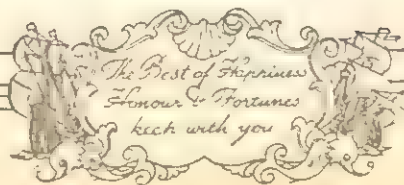 The Best of Happiness
Honour & Fortunes
keep with you